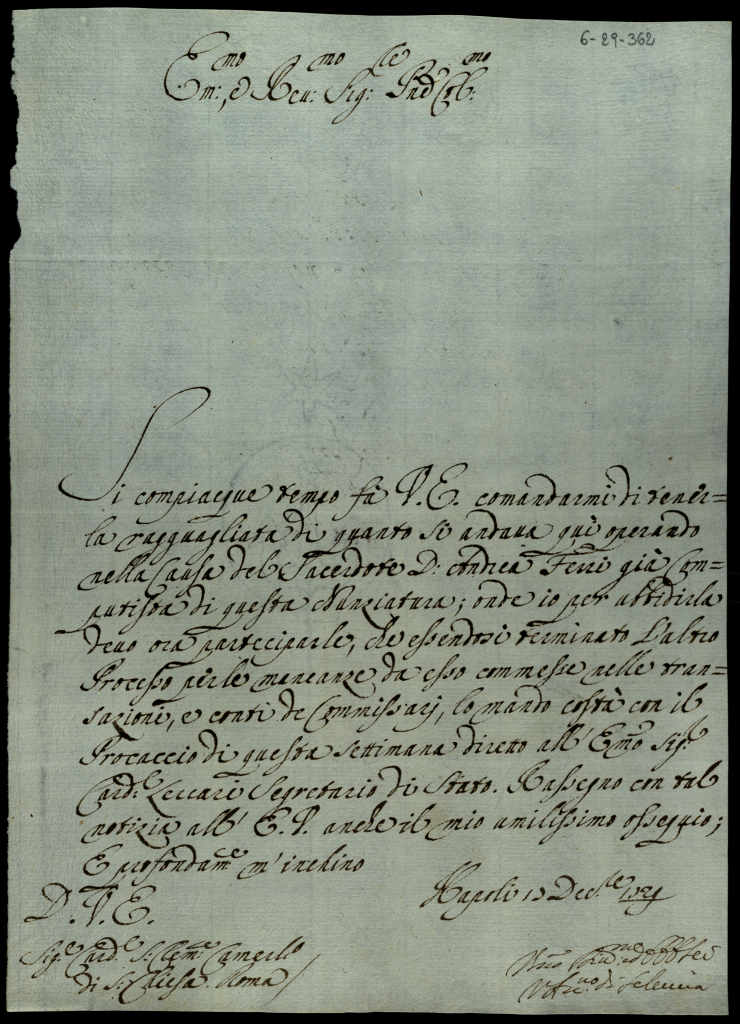 6-29-362
Em:mo, e Reu:mo Sig:re Pne Col:mo
Si compiacque tempo fà V.E. comandarmi di tener=
la ragguagliata di quanto si andaua quì operando
nella Causa del Sacerdote D: Andrea Ferri già Com=
putista di questa Nunziatura; onde io per ubbidirla
deuo ora parteciparle, che essendosi terminato L'altro
Processo pèr le mancanze da esso commesse nelle tran=
sazioni, e conti de Commissarj, lo mando costà con il
Procaccio di questa settimana diretto all' Emo Sig:r
Card:e Lercari Segretario di Stato. Rassegno con tal
notizia all' E.V. anche il mio umilissimo ossequio;
E profondam:te m'inchino
D. V. E.
Napoli 13 Dec:re
Sig:e Card:e S: Clem:te Camerl:o
di S: Chiesa. Roma
di Seleucia